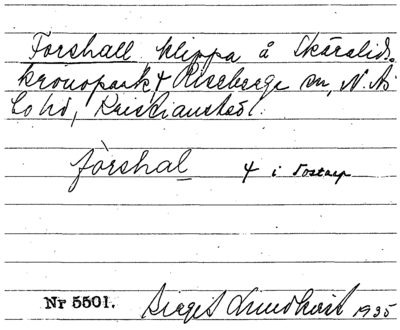 Forshall, klippa å Skäralids
kronopark + Riseberga sn, N. Ås-
bo hd, Kristianstad l.
fòrshal + i Tostarp
Nr 5501. Birgit Lundkvist 1935